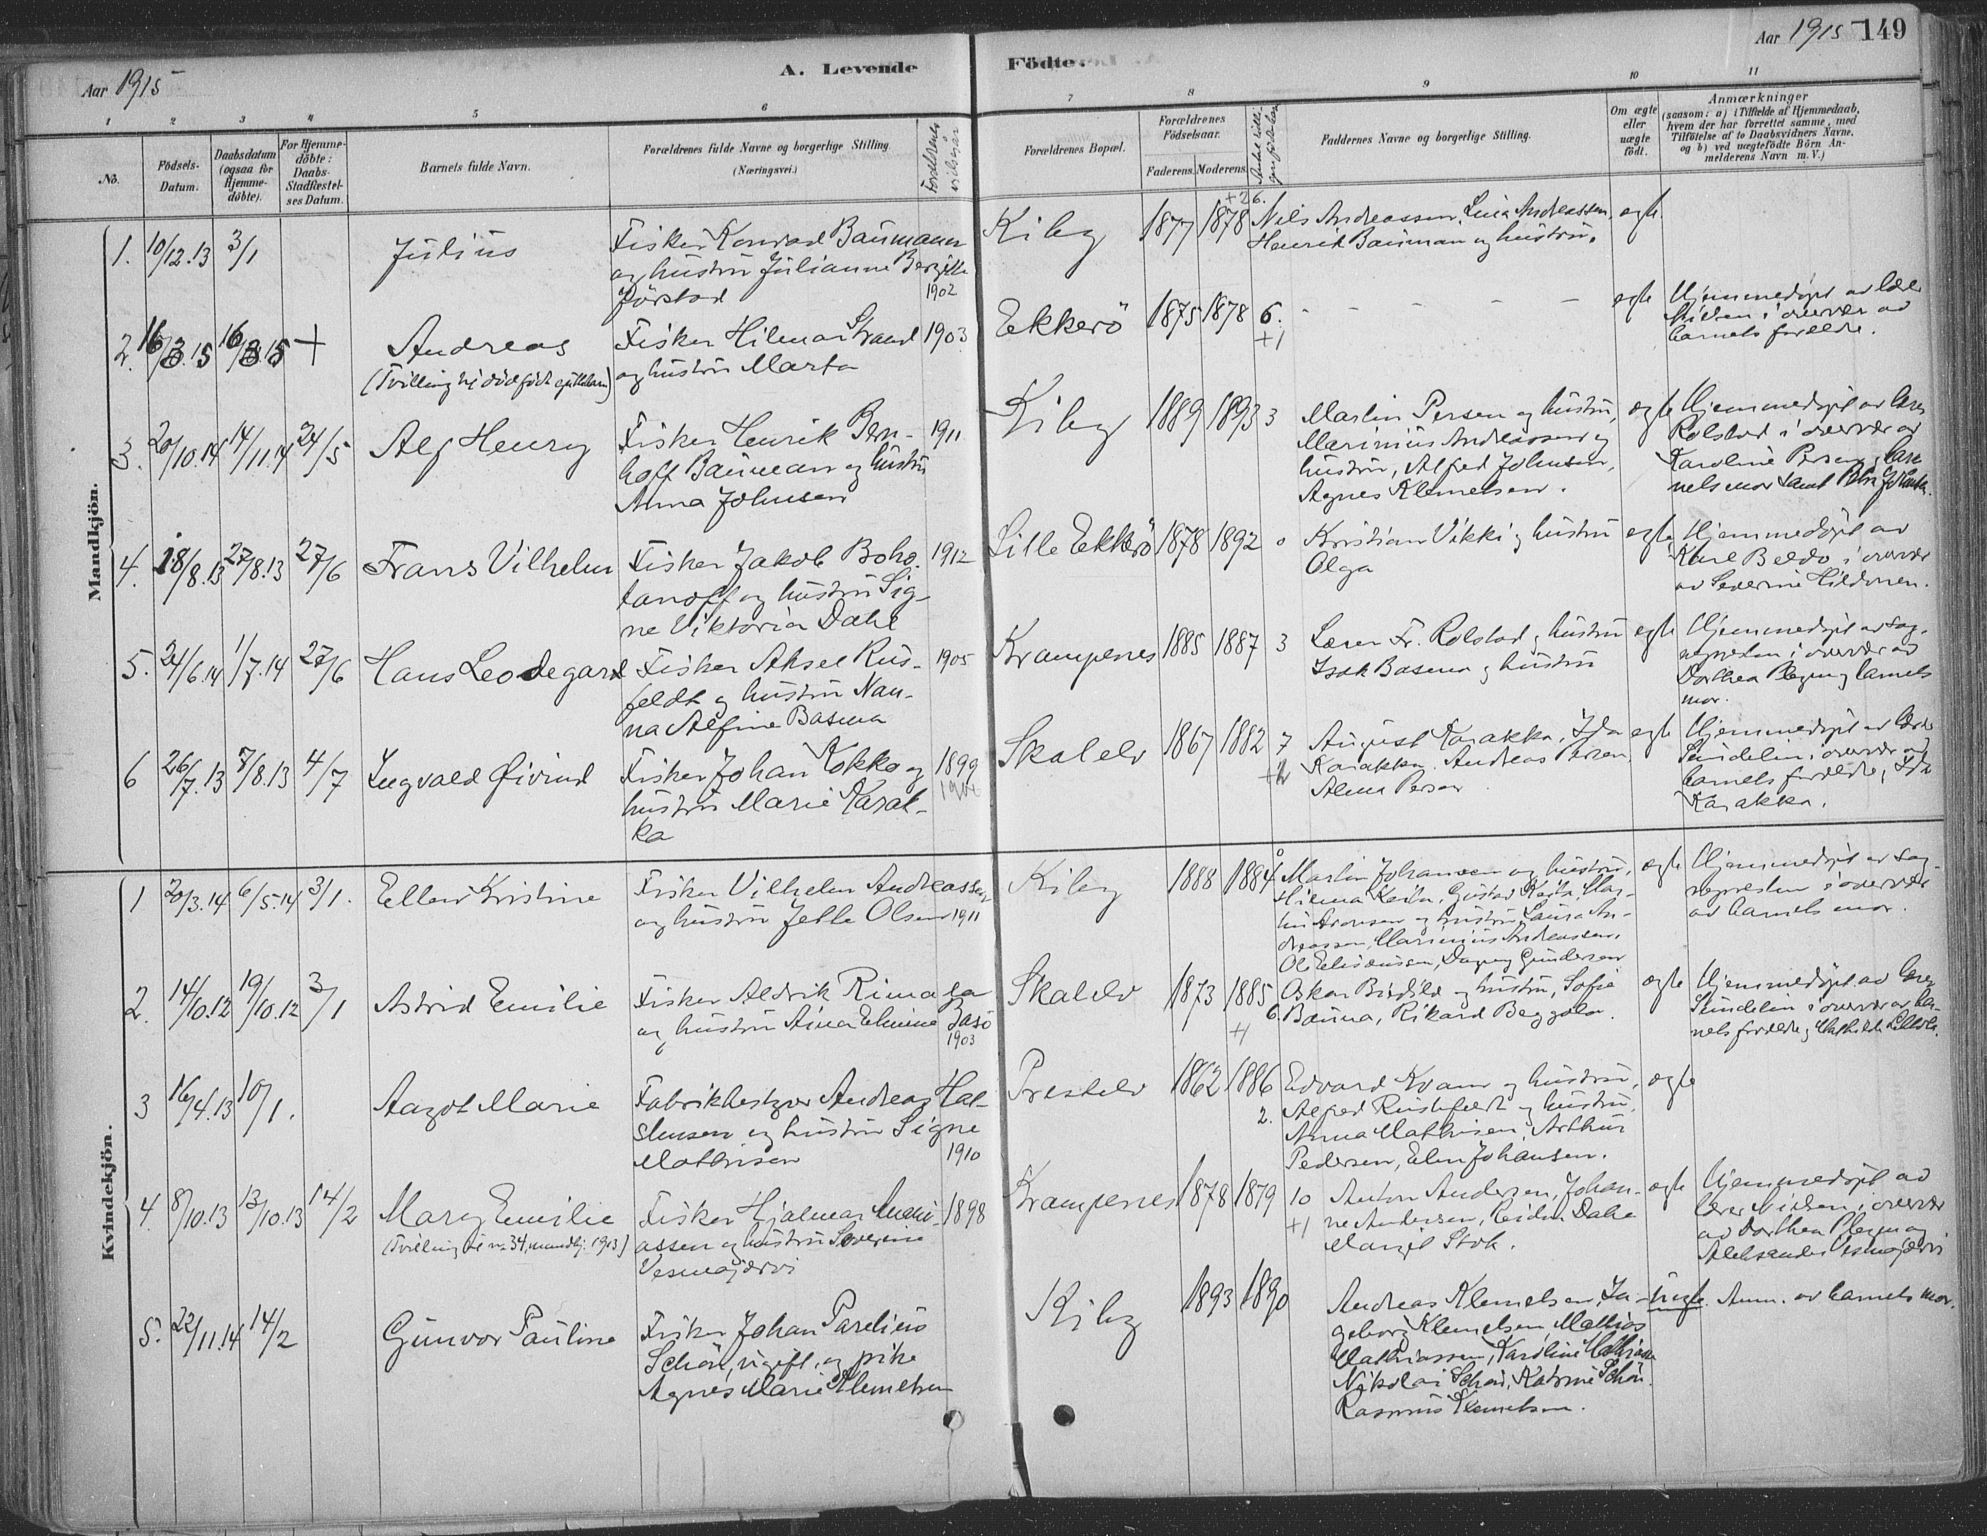 Aar 1915
A. Levende
Födte.
Aar 1915 149
1 2 3 4 5 6 7 8 9 10 11
No.
Födsels-Datum.
Daabsdatum (ogsaa for Hjemme-döbte).
For Hjemme-döbte: Daabs-Stadfæstel-ses Datum.
Barnets fulde Navn.
Forældrenes fulde Navne og borgerlige Stilling (Næringsvei.)
Forældrenes Bopæl.
Forældrenes Födselsaar.
Faderens. Moderens.
Faddernes Navne og borgerlige Stilling.
Om ægte eller uægte födt.
Anmærkninger
(saasom: a) i Tilfælde af Hjemmedaab,
hvem der har forrettet samme, med
Tilföielse af to Daabsvidners Navne,
og b) ved uægtefödte Börn An-
melderens Navn m. V.)
Mandkjön.
1. 10/12.13 3/1 Julius
Fisker Konrad Baumann
og hustru Julianne Bergitte
Jörstad 1902
Kiby 1877 1878 +2 6.
Nils Andreassen, Lina Andreassen,
Henrik Bauman og hustru.
egte
2. 16/3.15 16/3.15 + Andreas
(Tvilling til dødfødt
Fisker Hilmar Strand 1903
og hustru Marta
Ekkerö 1875 1878 6. +1
- - - - -
egte
Hjemmedöpt av lærer
Nielsen i overvær av
barnets forældre.
3. 20/10.14 14/11.14 24/5 Alf Henry
Fisker Henrik Bern- 1911
hoff Bauman og hustru
Anna Johnsen
Kiby 1889 1893 3
Martin Persen og hustru,
Marinius Andreassen og
hustru, Alfred Johnsen,
Agnes Klemetsen.
egte
Hjemmedöpt av lærer
Rolstad i overvær av
Karoline Persen, bar-
nets mor samt
4. 18/8.13 27/8.13 27/6 Frans Vilhelm
Fisker Jakob Boho- 1912
lanoff og hustru Sig-
ne Viktoria Dahl
Lille Ekkerö 1878 1892 0
Kristian Vikki og hustru
Olga
egte
Hjemmedöpt av
Karl Beldo i overvær
av Severine Hildonen.
5. 24/6.14 1/7.14 27/6 Hans Leodegard
Fisker Aksel Rus- 1905
feldt og hustru Nan-
na Alfine Basma
Krampenes 1885 1887 3
Lærer Fr. Rolstad og hustru
Isak Basma og hustru
egte
Hjemmedöpt av sog-
nepresten i overvær av
Dorthea Plezum og barnets
mor.
6 26/7.13 7/8.13 4/7 Ingvald Øivind
Fisker Johan Kokko og 1899
hustru Marie Karak-
ka
Skalelv 1867 1882 7 +2
August Karakka, Ida
Karakka, Andreas Persen,
Alma Persen
egte
Hjemmedöpt av lærer
Sundelin i overvær av
barnets forældre, Ida
Karakka.
Kvindekjön.
1 20/3.14 6/5.14 3/1. Ellen Kristine
Fisker Vilhelm Andreassen
og hustru Jette Olsen 1911
Kiby 1888 1884 0
Martin Johansen og hustru,
Hilma Keila, Gustad Keila,
Aronsen og hustru, Laura An-
dreassen, Marinius Andreassen,
Dagny Gundersen
egte
Hjemmedöpt av sog-
nepresten i overvær
av barnets mor.
2. 14/10.12 19/10.12 3/1 Astrid Emilie
Fisker Aldrik Rimala
og hustru Aina Elmine Jasö
1903
Skalelv 1873 1885 6. +1
Oskar og hustru, Sofie
Bauna, Rikard Beggola.
egte
Hjemmedöpt av lærer
Sundelin i overvær av bar-
nets forældre, Mathilde
3 16/4.13 10/1. Aagot Marie
Fabrikbestyrer Andreas Hal-
stensen og hustru Signe
Mathisen 1910
Prestelv 1862 1886 2.
Edvard Kvam og hustru,
Alfred Rushfeldt og hustru,
Anna Mathisen, Arthur
Pedersen, Elen Johansen.
egte
4. 8/10.13 13/10.13 14/2 Mary Emilie
(Tvilling til nr. 34, mandkj. 1913)
Fisker Hjalmar Mari- 1898
assen og hustru Severine
Vesmajærvi
Krampenes 1878 1879 10 +1
Anton Andersen, Johan-
ne Andersen, Reidun Dahl
Margit Stok.
egte
Hjemmedöpt av
lærer Nielsen i overvær
av Dorthea Plezum og
Aleksander Vesmajærvi
5. 22/11.14 14/2 Gunvor Pauline
Fisker Johan Parelius
Schön, ugift, og pike
Agnes Marie Klemetsen
Kiby 1893 1890
Andreas Klemetsen, In-
geborg Klemetsen, Mathias
Mathiassen, Karoline Mathiassen
Nikolai Schön, Katrine Schön.
Rasmus Klemetsen.
uegte
Anm. av barnets mor.